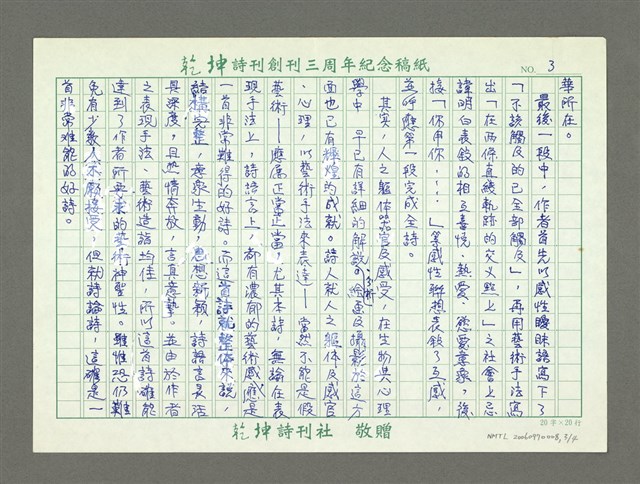 乾坤詩刊創刊三周年紀念稿紙
NO. 3
華所在。
最後一段中，作者首先以感性曖昧語寫下了
「不該觸及的已全部觸及」，再用藝術手法寫
出「在兩條直綫軌跡的交义點上」之社會上忌
諱明白表敘的相互喜悅、熱愛、慾愛意象，後
接「你中你……」等感性聯想表敘了互感，
並呼應第一段完成全詩。
其實，人之軀体器官及感受，在生物與心理
學中，早已有詳細的解說、分析，繪畫及攝影於這方
面也已有輝煌的成就。詩人就人之軀体及感官
、心理，以藝術手法來表達—當然不能是假
藝術—應屬正當正當，尤其本詩，無論在表
現手法上，詩語言上，都有濃郁的藝術感應是
一首非常難得的好詩。而這首詩就整体來說，
結構完整，意象生動，思想新穎，詩語言長活
具深度，且熱情奔放，言真意摯。並由於作者
之表現手法、藝術造詣均佳，所以這首詩確能
達到了作者所要求的藝術神聖性。雖惟恐仍難
免有少數人不願接受，但就詩論詩，這確是一
首非常難能的好詩。
20字×20行
乾坤詩刊社 敬贈
NMTL 20060970008, 3/4